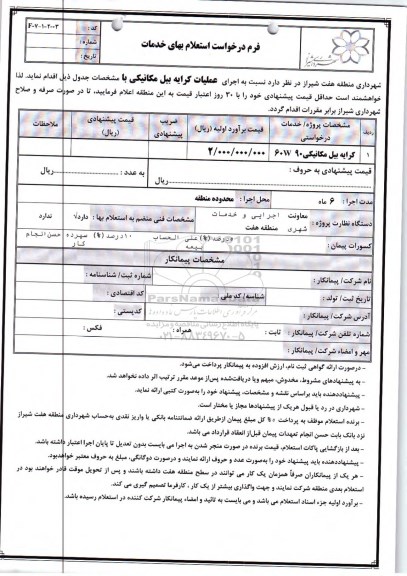 کد: F-۷-۰۱-۲-۰۳
شماره:
تاریخ:
فرم درخواست استعلام بهای خدمات
شهرداری منطقه هفت شیراز در نظر دارد نسبت به اجرای عملیات کرایه بیل مکانیکی با مشخصات جدول ذیل اقدام نماید. لذا
خواهشمند است حداقل قیمت پیشنهادی خود را با ۳۰ روز اعتبار قیمت به این منطقه اعلام فرمایید، تا در صورت صرفه و صلاح
شهرداری شیراز برابر مقررات اقدام گردد.
ردیف مشخصات پروژه/ خدمات درخواستی قیمت برآورد اولیه (ریال) ضریب پیشنهادی قیمت پیشنهادی (ریال) ملاحظات
۱ کرایه بیل مکانیکی ۶۰W ۹۰ ۲/۰۰۰/۰۰۰/۰۰۰
قیمت پیشنهادی به حروف: ریال به عدد: ریال
مدت اجرا: ۶ ماه محل اجرا: محدوده منطقه
دستگاه نظارت پروژه: معاونت اجرایی و خدمات شهری منطقه هفت مشخصات فنی منضم به استعلام بها: دارد√ ندارد
کسورات پیمان: درصد(%) علی الحساب بیمه ۱۰درصد(%) سپرده حسن انجام کار
مشخصات پیمانکار
نام شرکت/ پیمانکار: شماره ثبت/ شناسنامه:
تاریخ ثبت/ تولد: شناسه/ کد ملی کد اقتصادی:
آدرس شرکت/ پیمانکار: کدپستی:
شماره تلفن شرکت/ پیمانکار: ثابت: همراه: فکس:
مهر و امضاء شرکت/ پیمانکار:
ParsNamadData
۰۲۱-۸۸۳۴۹۶۷۰-۵
- درصورت ارائه گواهی ثبت نام، ارزش افزوده به پیمانکار پرداخت می‌شود.
- به پیشنهادهای مشروط، مخدوش، مبهم ویا دریافت‌شده پس‌از موعد مقرر ترتیب اثر داده نخواهد شد.
- پیشنهاددهنده باید براساس نقشه و مشخصات، پیشنهاد خود را به‌صورت کتبی ارائه نماید.
- شهرداری در رد یا قبول هریک از پیشنهادها مجاز یا مختار است.
- برنده استعلام موظف به پرداخت ۱۰% کل مبلغ پیمان ازطریق ارائه ضمانتنامه بانکی یا واریز نقدی به‌حساب شهرداری منطقه هفت شیراز
نزد بانک بابت حسن انجام تعهدات پیمان قبل‌از انعقاد قرارداد می باشد.
- بعد از بازگشایی پاکات استعلام، قیمت برنده در صورت منجر شدن به اجرا می بایست بدون تعدیل تا پایان اجرا اعتبار داشته باشد.
- پیشنهاددهنده باید پیشنهاد خود را به‌صورت عدد و حروف ارائه نمایند و درصورت دوگانگی، مبلغ به حروف معتبر خواهدبود.
- هر یک از پیمانکاران صرفاً همزمان یک کار می توانند در سطح منطقه هفت داشته باشند و پس از تحویل موقت قادر خواهند بود در
استعلام بعدی منطقه شرکت نمایند و جهت واگذاری بیشتر از یک کار، کارفرما تصمیم گیری می کند.
- برآورد اولیه جزء اسناد استعلام می باشد و می بایست به تائید و امضاء پیمانکار شرکت کننده در استعلام رسیده باشد.